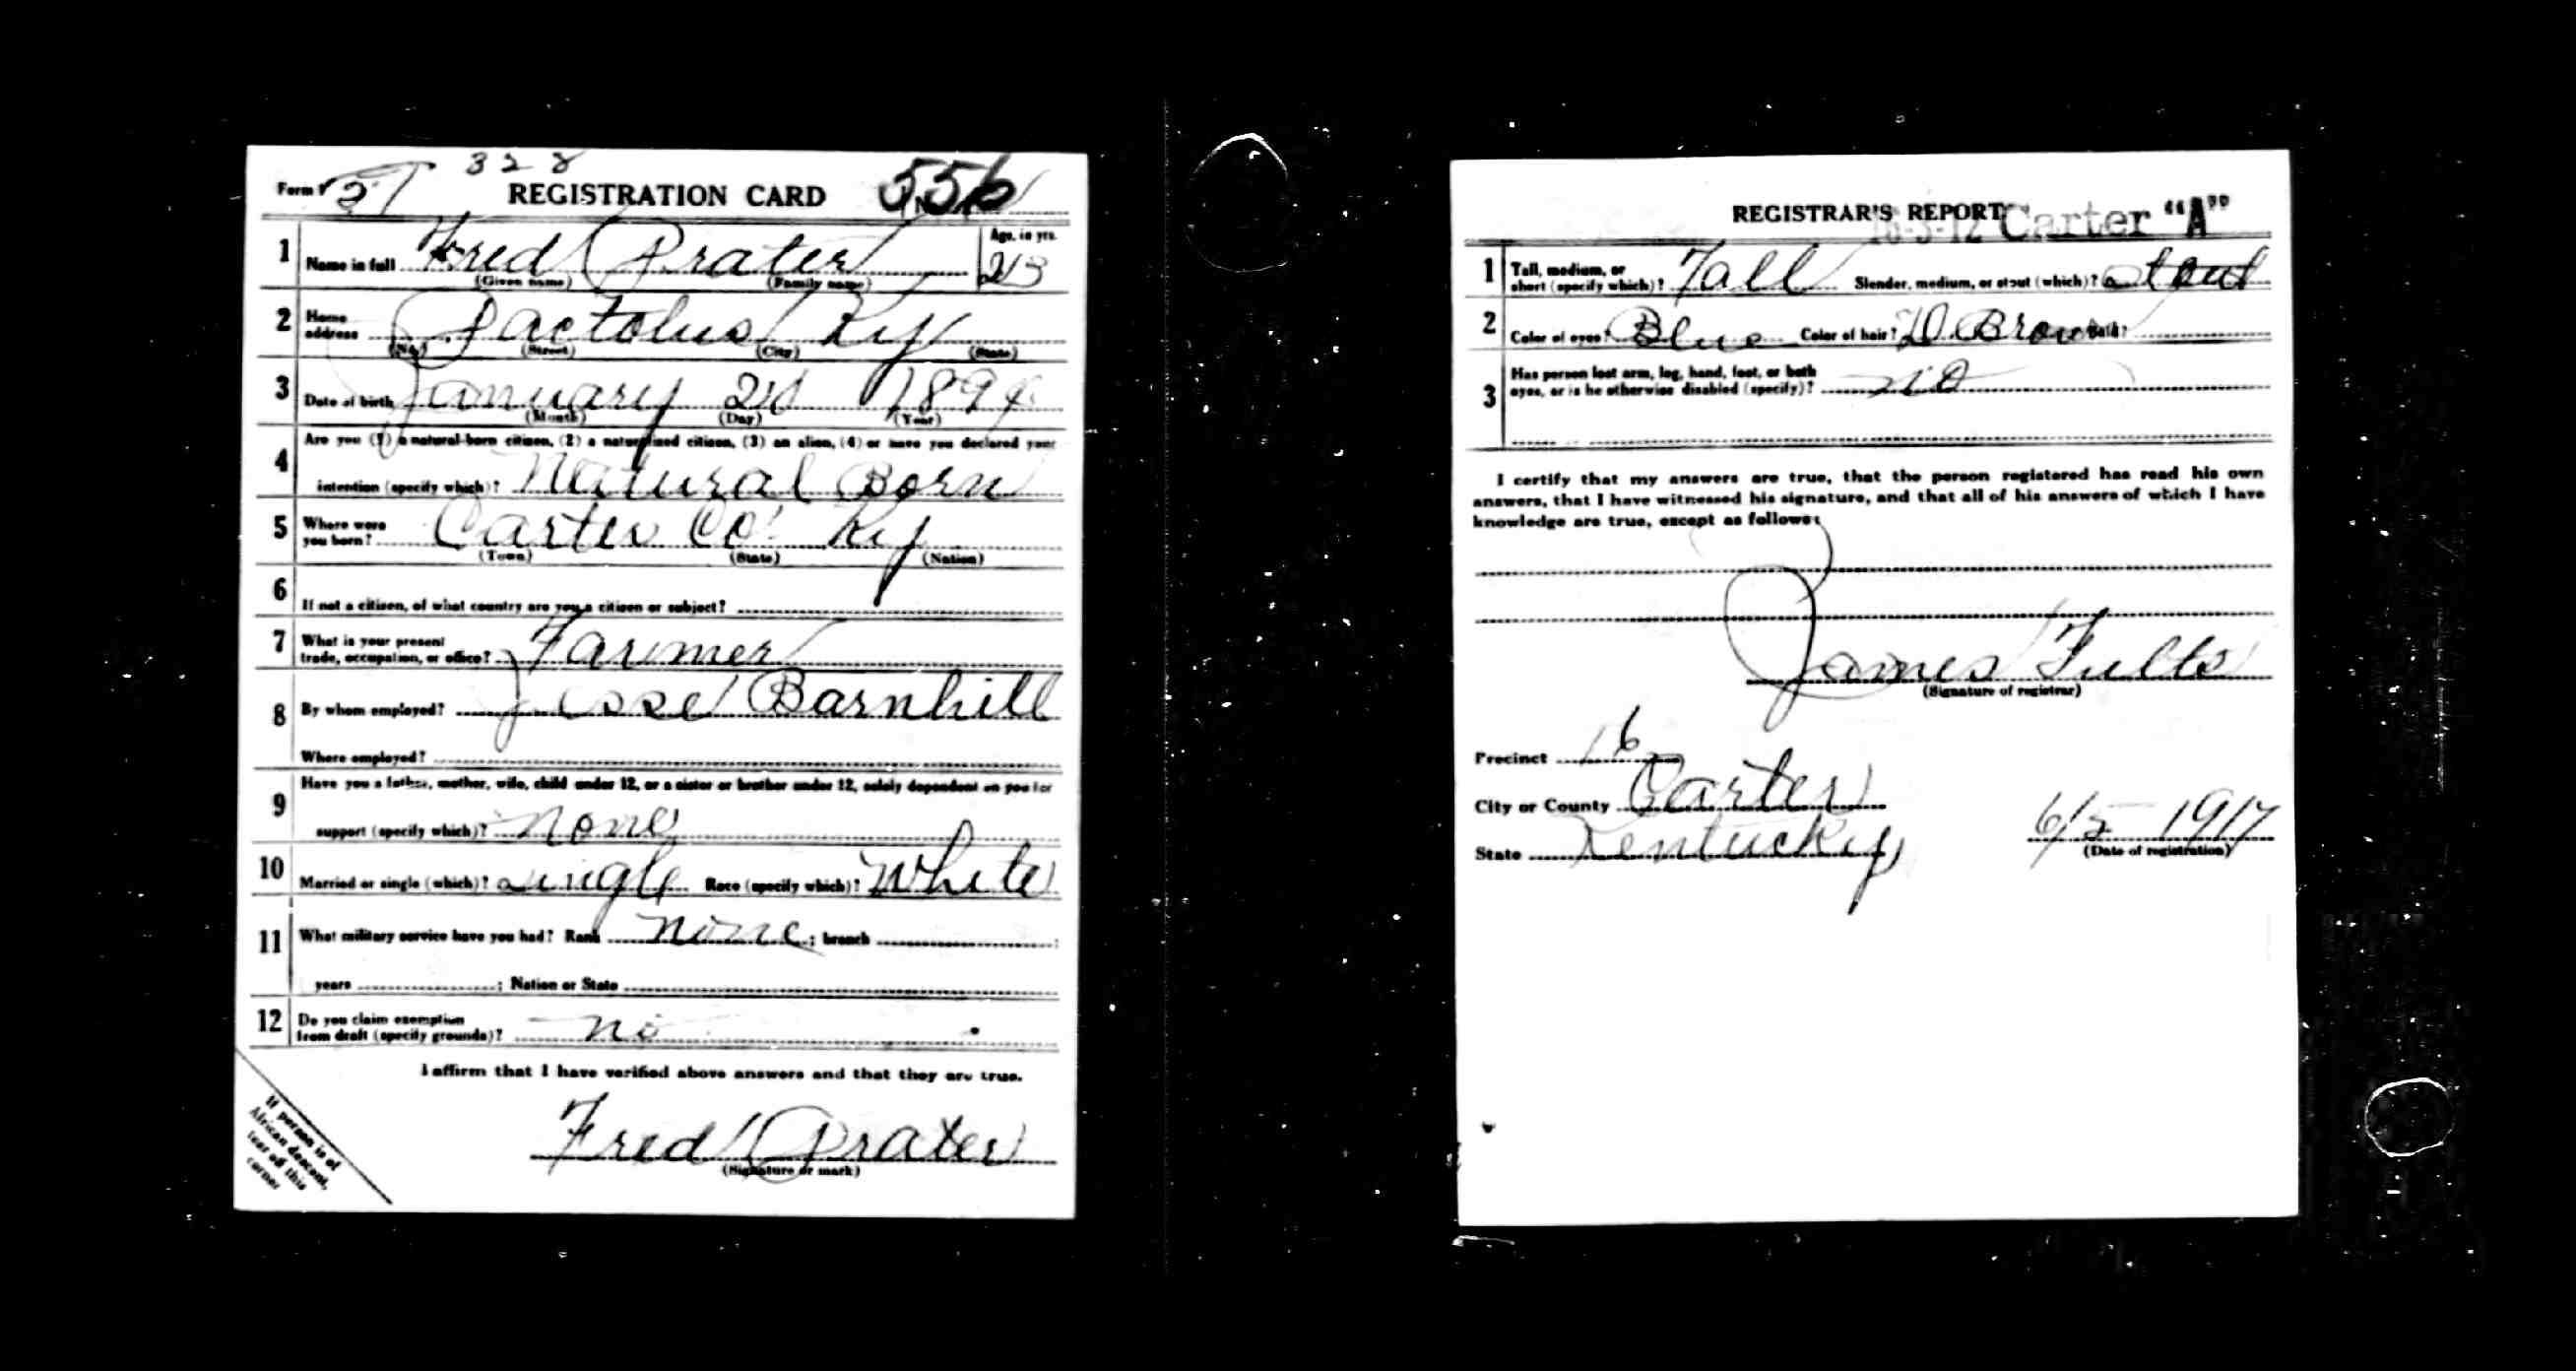 328
Form 1 REGISTRATION CARD 556
1 Name in full Fred Prater Age, in yrs. 23
(Given name) (Family name)
2 Home address Pactolus Ky
(No.) (Street) (City) (State)
3 Date of birth January 24 1894
(Month) (Day) (Year)
4 Are you (1) a natural-born citizen, (2) a naturalized citizen, (3) an alien, (4) or have you declared your
intention (specify which)? Natural Born
5 Where were you born? Carter Co. Ky
(Town) (State) (Nation)
6 If not a citizen, of what country are you a citizen or subject?
7 What is your present trade, occupation, or office? Farmer
8 By whom employed? Jesse Barnhill
Where employed?
9 Have you a father, mother, wife, child under 12, or a sister or brother under 12, solely dependent on you for
support (specify which)? None
10 Married or single (which)? Single Race (specify which)? White
11 What military service have you had? Rank None ; branch ;
years ; Nation or State
12 Do you claim exemption from draft (specify grounds)? No
I affirm that I have verified above answers and that they are true.
Fred Prater
(Signature or mark)
If person is of
African descent,
tear off this
corner
REGISTRAR'S REPORT 16-3-12 Carter "A"
1 Tall, medium, or short (specify which)? Tall Slender, medium, or stout (which)? Stout
2 Color of eyes? Blue Color of hair? D. Brown Bald?
3 Has person lost arm, leg, hand, foot, or both
eyes, or is he otherwise disabled (specify)? No
I certify that my answers are true, that the person registered has read his own
answers, that I have witnessed his signature, and that all of his answers of which I have
knowledge are true, except as follows:
James Fults
(Signature of registrar)
Precinct 16
City or County Carter
State Kentucky
6/5 1917
(Date of registration)